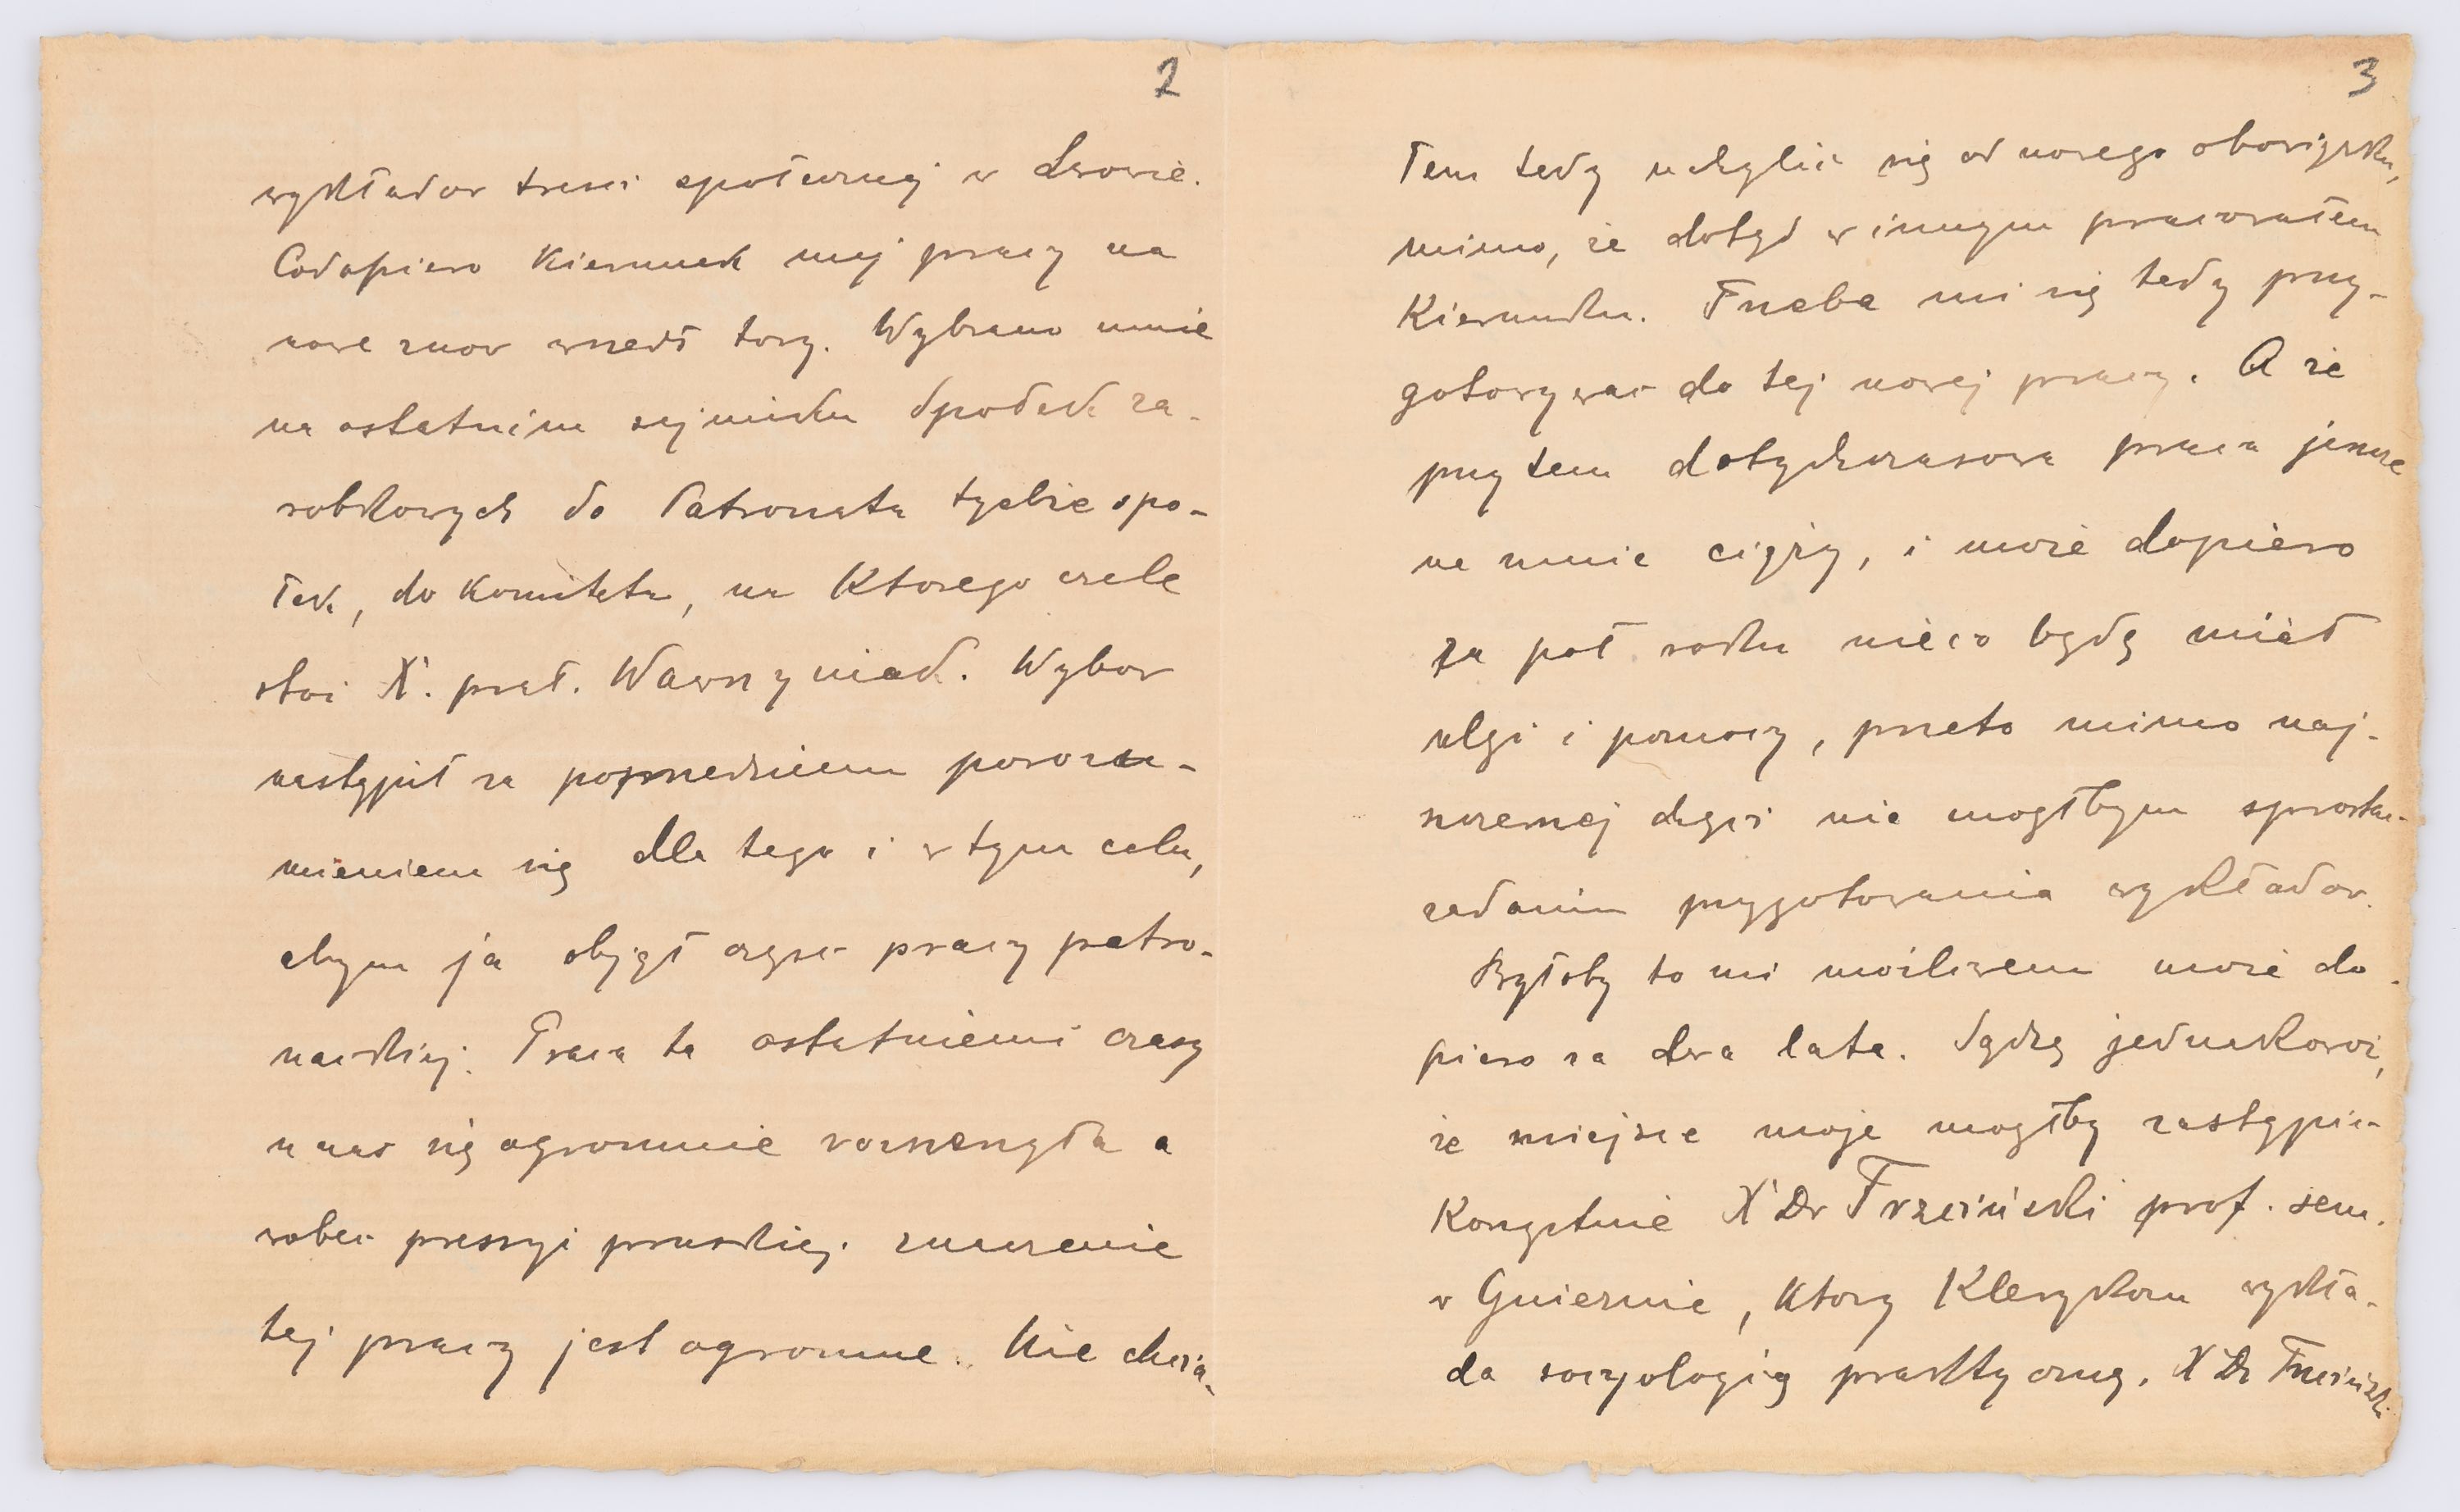 2
wykładow tresci społecznej w Lwowie.
Codopiero kierunek mej pracy na
nowe znow wszedł tory. Wybrano mnie
na ostatnim sejmiku Społek za-
robkowych do Patronatu tychże spo-
łek, do komitetu, na ktorego czele
stoi X. prał. Wawrzyniak. Wybor
nastąpił za poprzedniem porozu-
mieniem się dla tego i w tym celu,
abym ja objął częsc pracy patro-
nackiej. Praca ta ostatniemi czasy
u nas się ogromnie rozszerzyła a
wobec pressyi pruskiej znaczenie
tej pracy jest ogromne. Nie chcia-
3
łem tedy uchylic się od nowego obowiązku,
mimo, że dotąd w innym pracowałem
kierunku. Trzeba mi się tedy przy-
gotowywac do tej nowej pracy. A że
przytem dotychczasowa praca jeszcze
na mnie ciąży, i może dopiero
za poł roku nieco będę miał
ulgi i pomocy, przeto mimo naj-
szczerszej chęci nie mogłbym sprosta-
zadaniu przygotowania wykładow.
Byłoby to mi możliwem może do-
piero za dwa lata. Sądzę jednakowoż,
że miejsce moje mogłby zastąpic
Korzystnie X Dr Trzciński prof. sem.
w Gnieznie, ktory Klerykom wykła-
da socyologią praktyczną. X Dr Trzciński